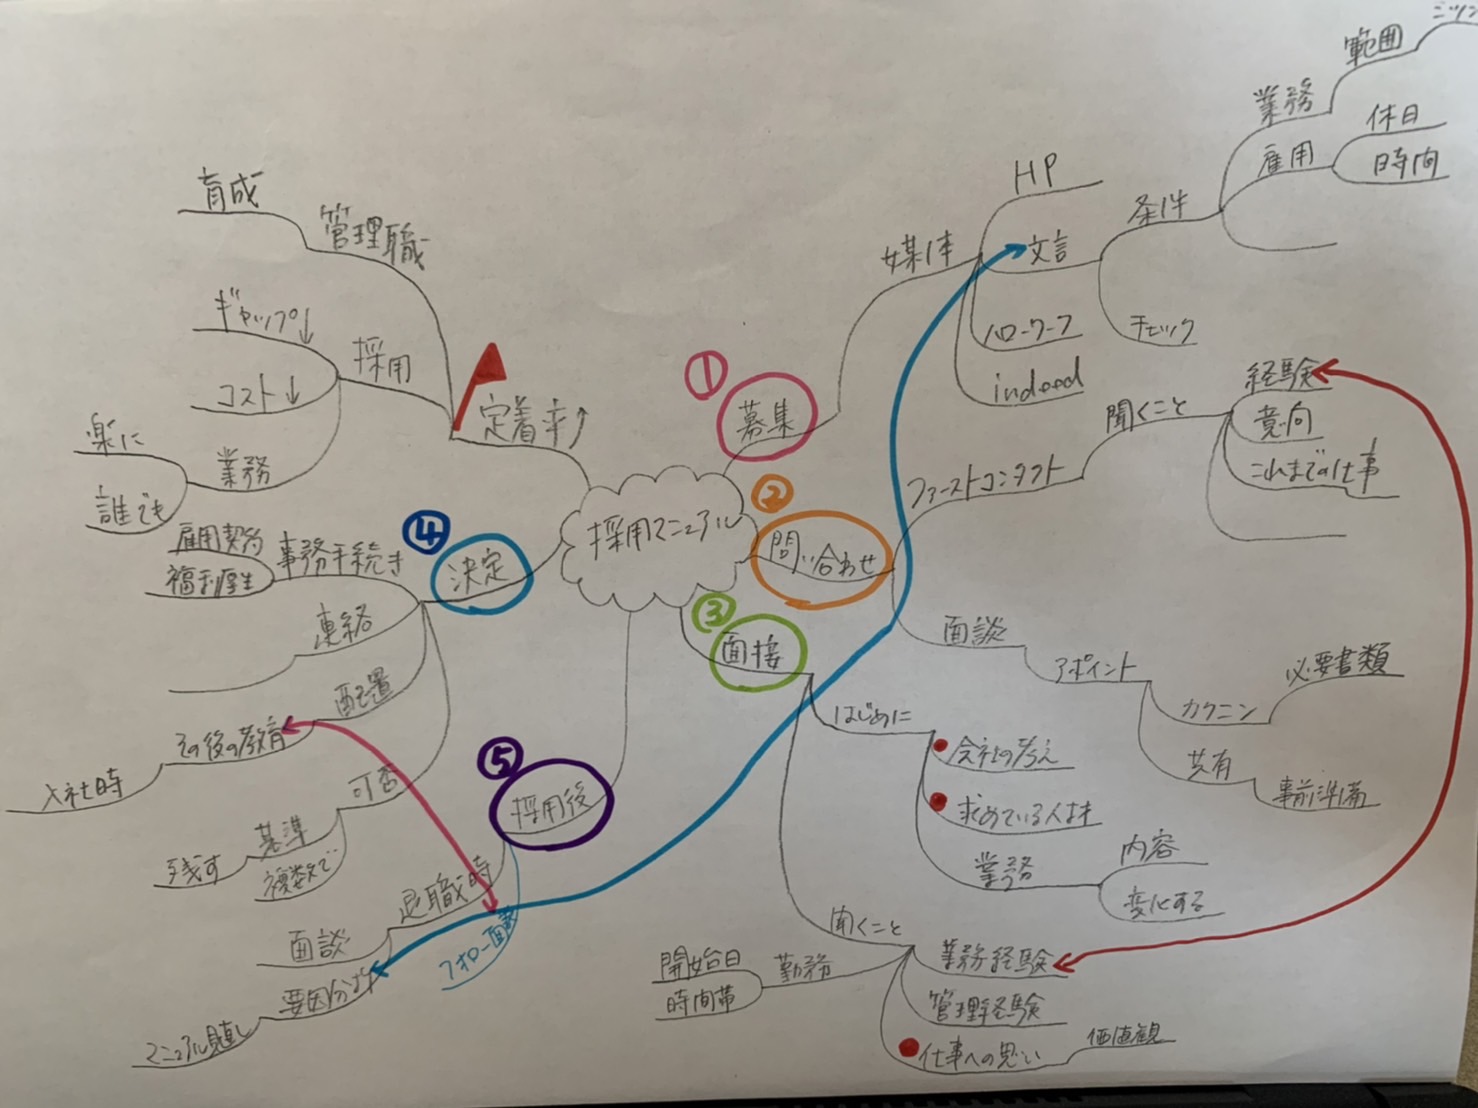 採用マニュアル
①
募集
媒体
HP
文言
条件
業務
範囲
雇用
休日
時間
チェック
ハローワーク
indeed
②
問い合わせ
ファーストコンタクト
聞くこと
経験
意向
これまでの仕事
面談
アポイント
カクニン
必要書類
共有
事前準備
③
面接
はじめに
会社の考え
求めている人材
業務
内容
変化する
聞くこと
業務経験
管理経験
仕事への思い
価値観
勤務
開始日
時間帯
④
決定
事務手続き
雇用契約
福利厚生
連絡
配置
その後の教育
入社時
可否
基準
残す
複数で
⑤
採用後
退職時
面談
要因分析
マニュアル見直し
フォロー面談
定着率↑
管理職
育成
採用
ギャップ↓
コスト↓
業務
楽に
誰でも